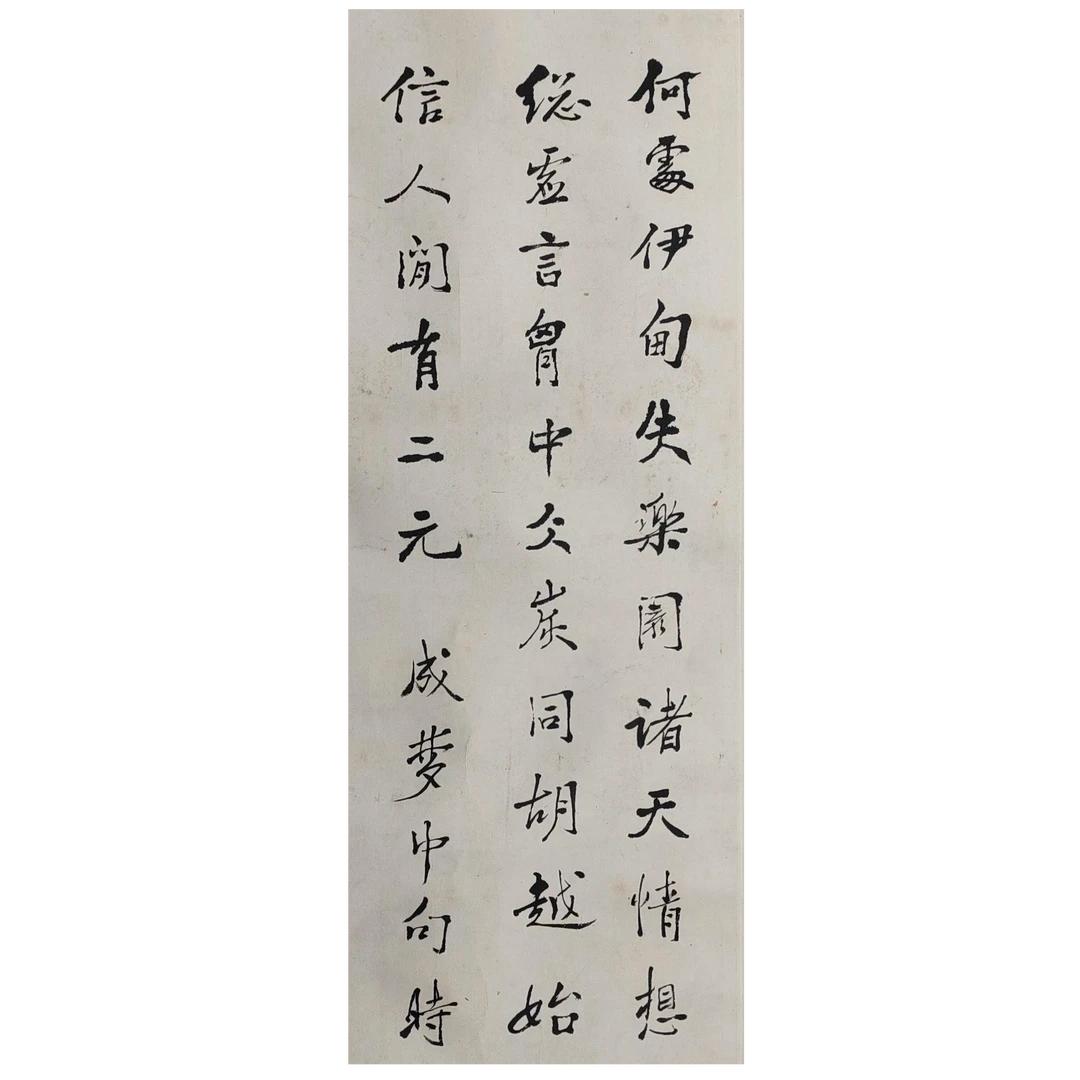 何處伊甸失樂園諸天情想
總虛言胷中仌炭同胡越始
信人閒有二元 成夢中句時